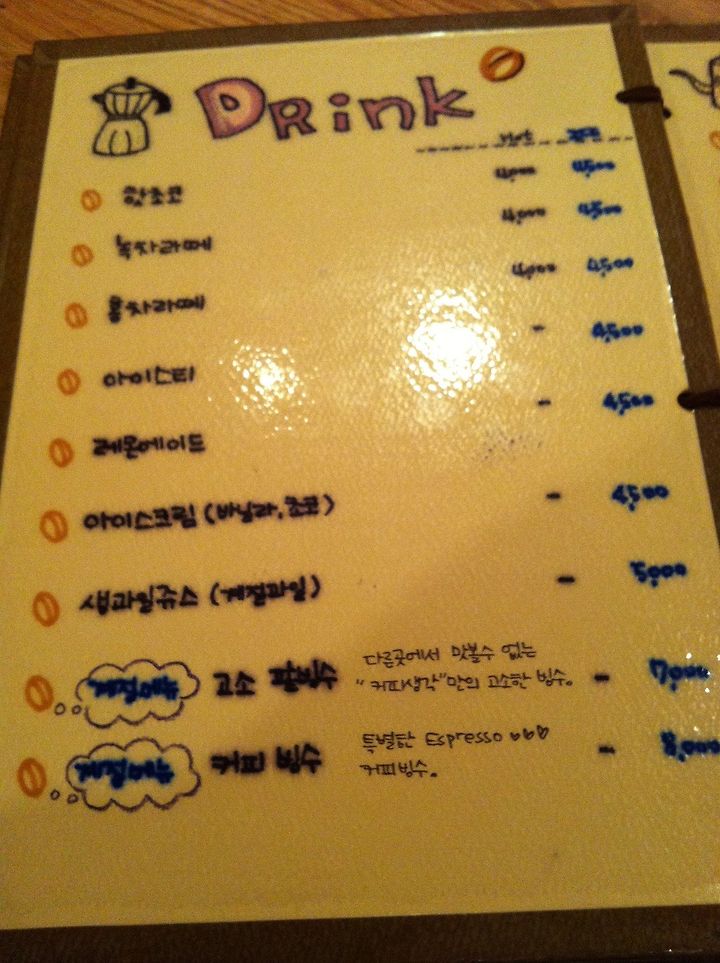 DRink
핫초코 4,000 4,500
녹차라떼 4,000 4,500
홍차라떼 4,000 4,500
아이스티 - 4,500
레몬에이드 - 4,500
아이스크림 (바닐라, 초코) - 4,500
생과일쥬스 (계절과일) - 5,000
계절메뉴 고소 팥빙수 다른곳에서 맛볼수 없는
"커피생각"만의 고소한 빙수. - 7,000
계절메뉴 커피 빙수 특별한 Espresso ♡♡♡
커피빙수. - 8,000